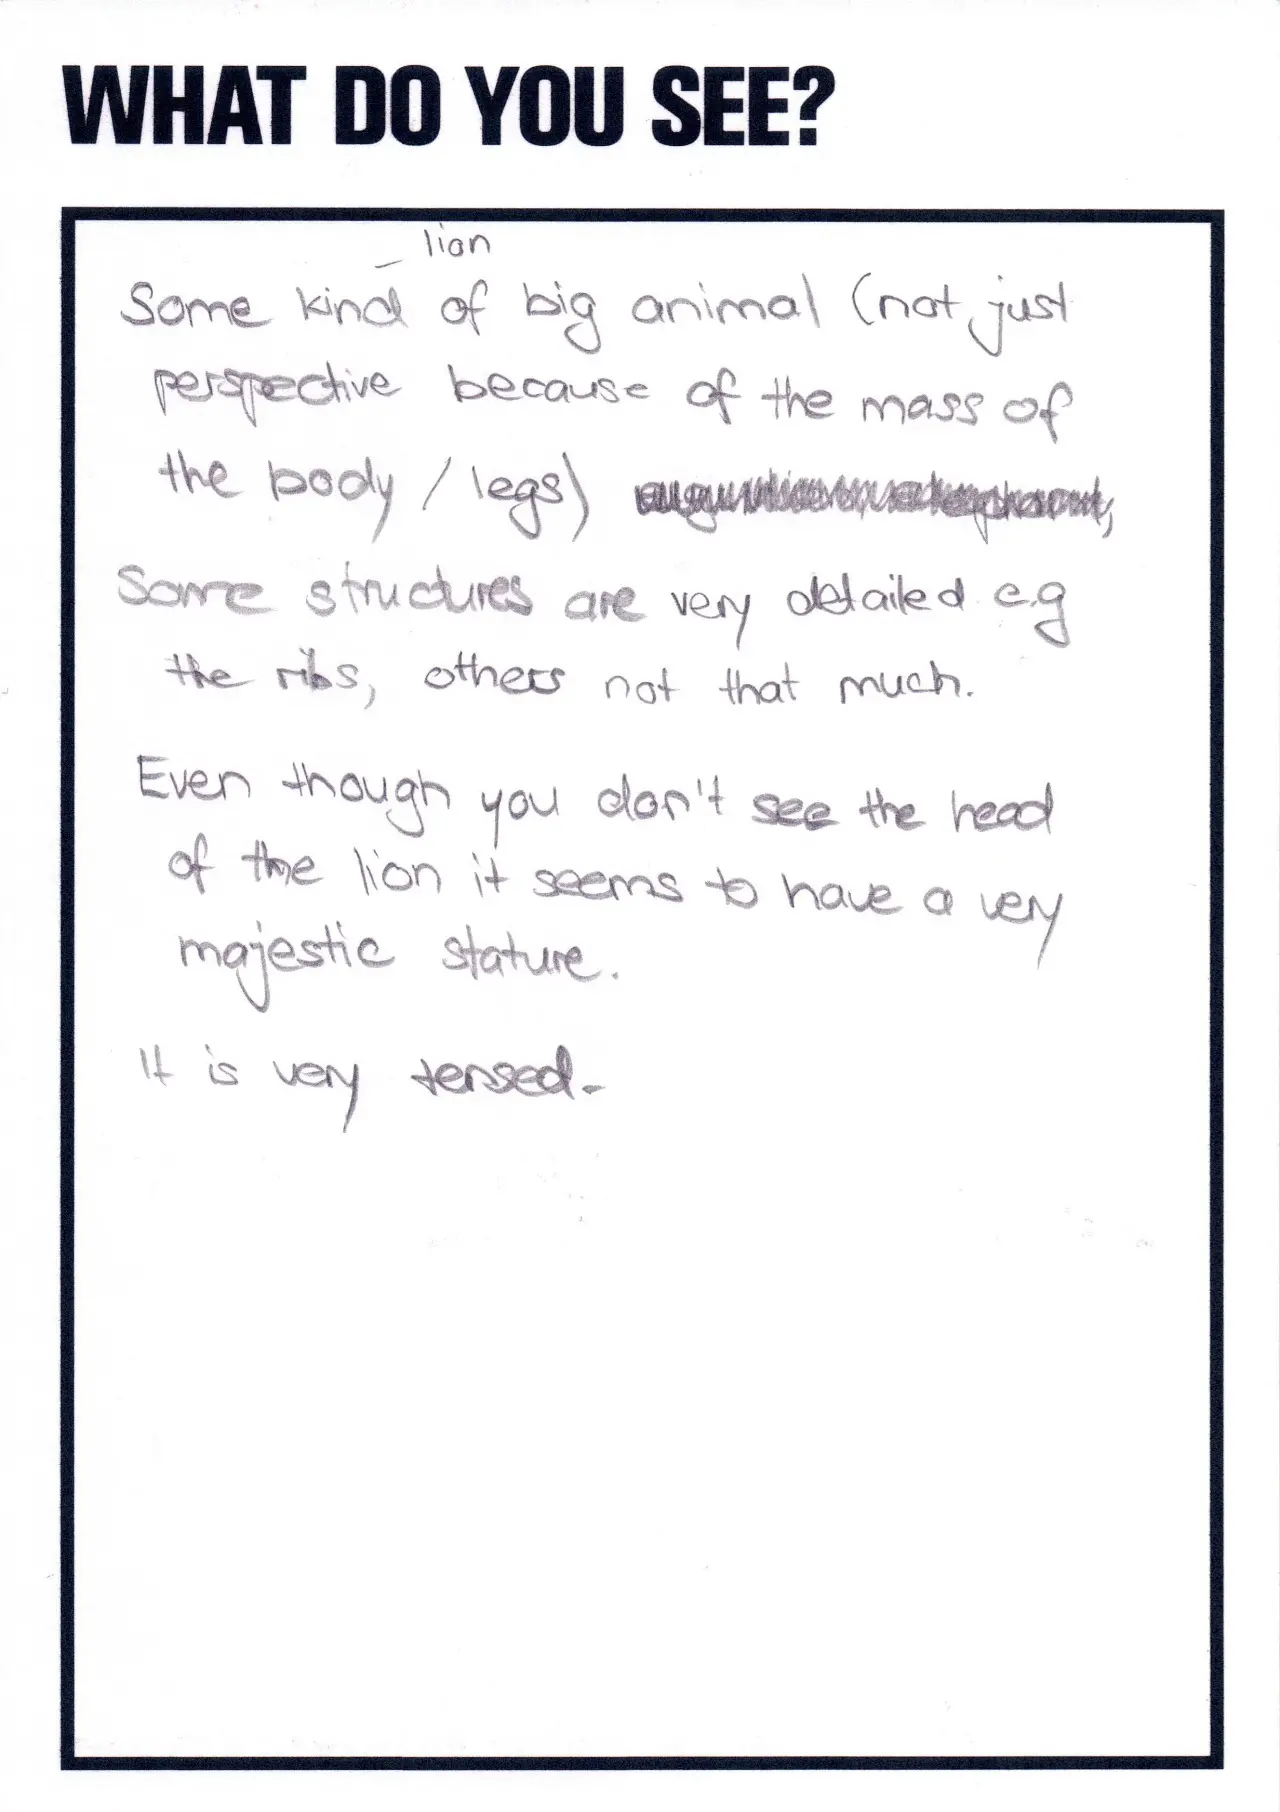 WHAT DO YOU SEE?
lion
Some kind of big animal (not just
perspective because of the mass of
the body / legs)
Some structures are very detailed e.g
the ribs, others not that much.
Even though you don't see the head
of the lion it seems to have a very
majestic stature.
It is very tensed.